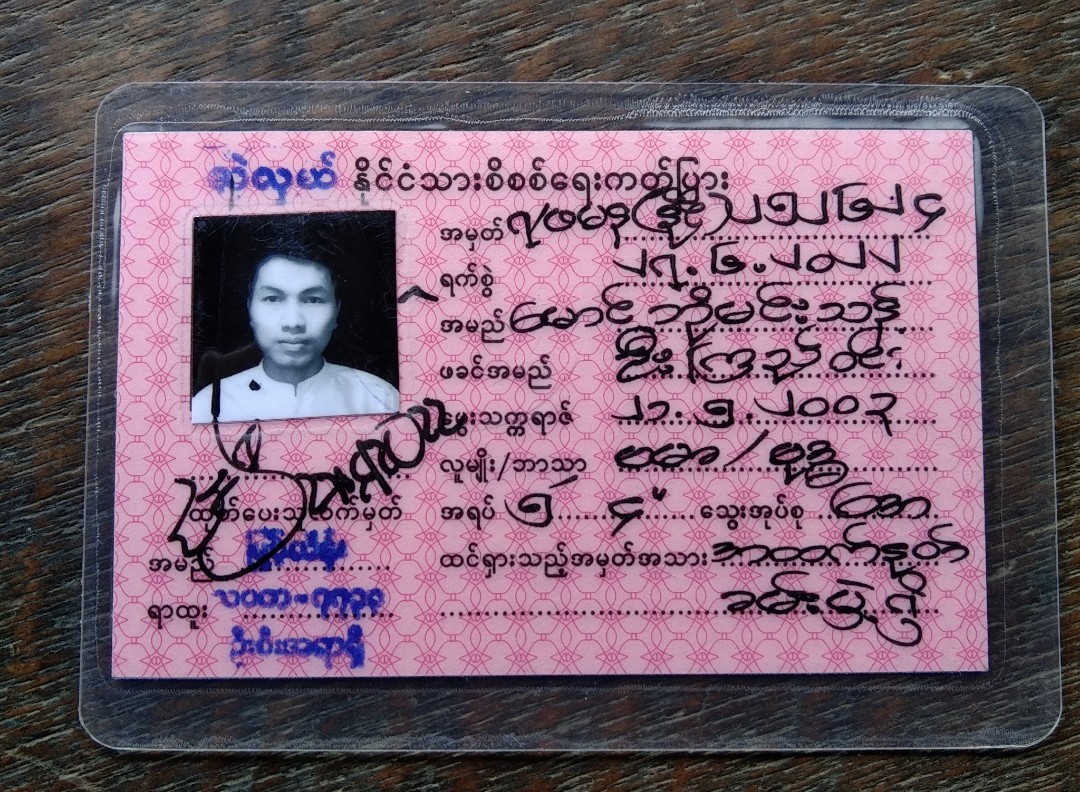 ဆဲလှယ် နိုင်ငံသားစိစစ်ရေးကတ်ပြား
အမှတ် ၇/ဖမန(နိုင်)၂၅၂၆၂၄
ရက်စွဲ ၂၇.၆.၂၀၂၂
အမည် မောင်ဘိုမင်းသန့်
ဖခင်အမည် ဦးကြည်ဝင်း
မွေးသက္ကရာဇ် ၂၁.၅.၂၀၀၃
လူမျိုး/ဘာသာ ဗမာ/ဗုဒ္ဓ
အရပ် ၅' ၄" သွေးအုပ်စု အေ
ထင်ရှားသည့်အမှတ်အသား
ထုတ်ပေးသူလက်မှတ်
အမည်
ရာထူး လဝက-၇၇၃၉
ဦးစီးအရာရှိ